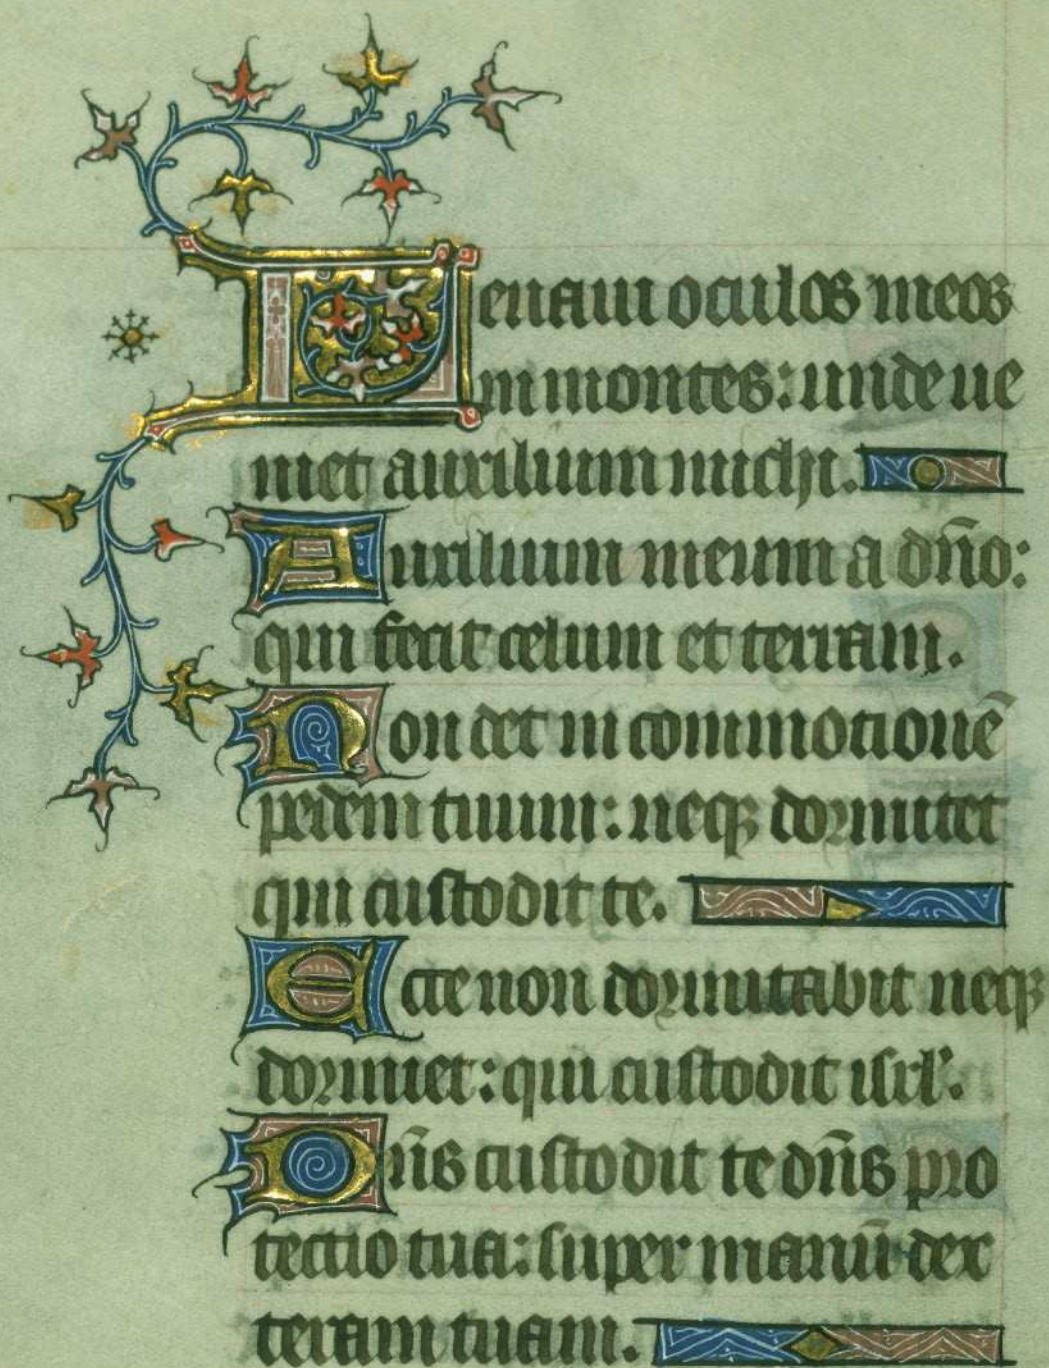 Leuaui oculos meos
in montes: unde ue
niet auxilium michi.
Auxilium meum a dn̄o:
qui fecit celum et terram.
Non det in commotionē
pedem tuum: neqꝫ dormitet
qui custodit te.
Ecce non dormitabit neqꝫ
dormiet: qui custodit isrl'.
Dn̄s custodit te dn̄s pro
tectio tua: super manū dex
teram tuam.